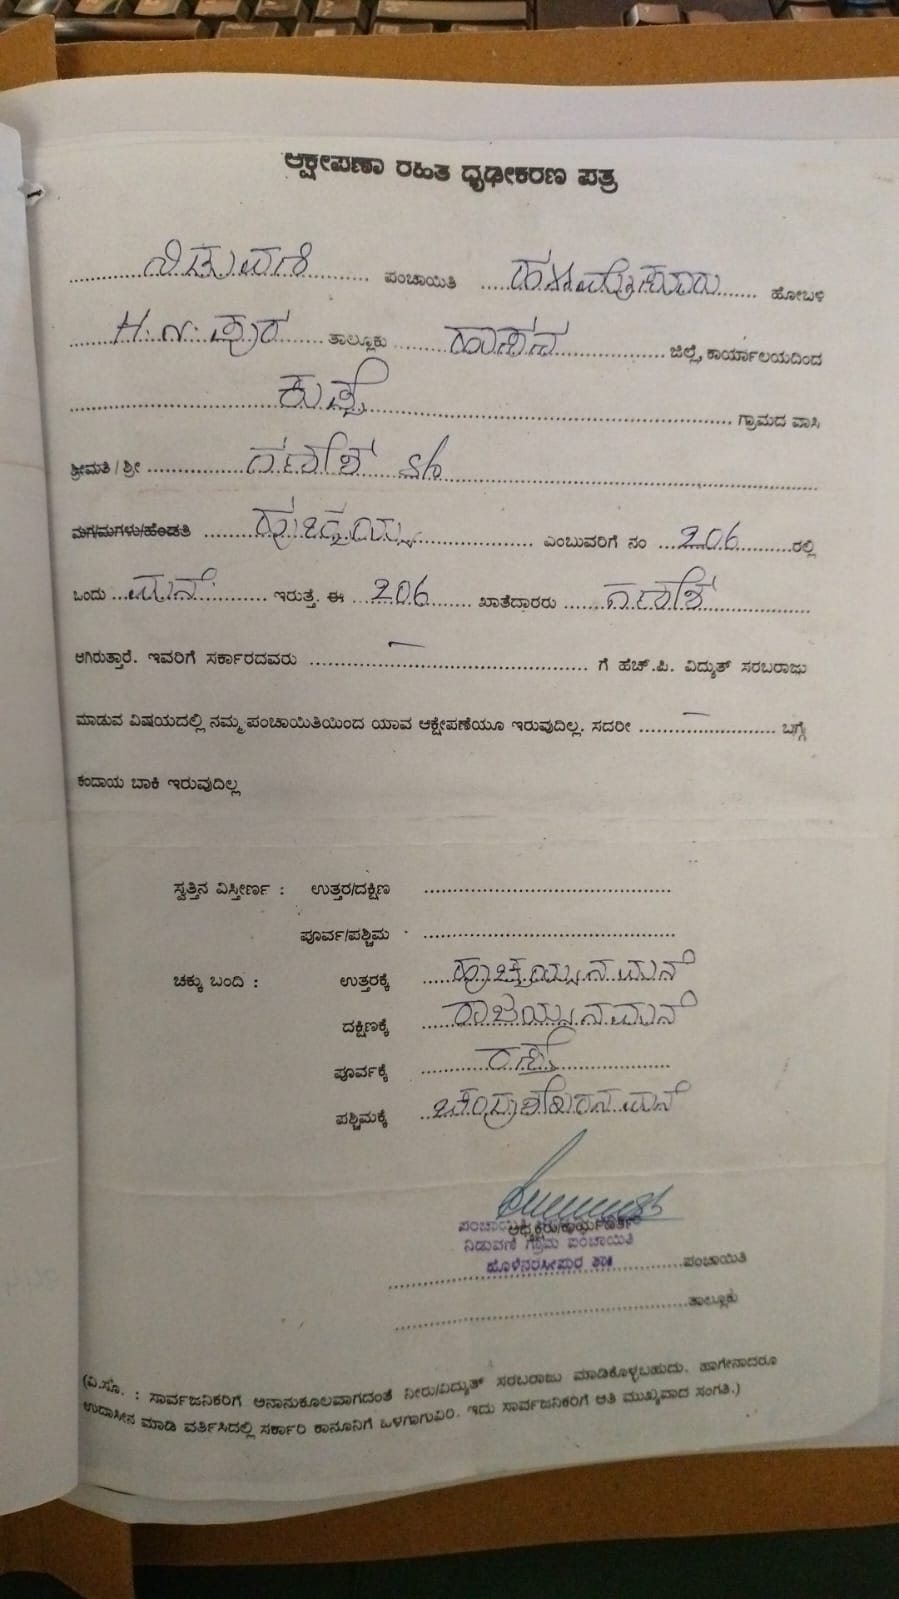 ಆಕ್ಷೇಪಣಾ ರಹಿತ ಧೃಢೀಕರಣ ಪತ್ರ
ನಿಡುವಣಿ ಪಂಚಾಯಿತಿ ಹಳೇಕೋಟೆ ಹೋಬಳಿ
H.N. ಪುರ ತಾಲ್ಲೂಕು ಹಾಸನ ಜಿಲ್ಲೆ, ಕಾರ್ಯಾಲಯದಿಂದ
ಗ್ರಾಮದ ವಾಸಿ
ಶ್ರೀಮತಿ / ಶ್ರೀ ಗಣೇಶ S/o
ಮಗ/ಮಗಳು/ಹೆಂಡತಿ ಎಂಬುವರಿಗೆ ನಂ 206 ರಲ್ಲಿ
ಒಂದು ಮನೆ ಇರುತ್ತೆ. ಈ 206 ಖಾತೆದಾರರು ಗಣೇಶ
ಆಗಿರುತ್ತಾರೆ. ಇವರಿಗೆ ಸರ್ಕಾರದವರು — ಗೆ ಹೆಚ್.ಪಿ. ವಿದ್ಯುತ್ ಸರಬರಾಜು
ಮಾಡುವ ವಿಷಯದಲ್ಲಿ ನಮ್ಮ ಪಂಚಾಯಿತಿಯಿಂದ ಯಾವ ಆಕ್ಷೇಪಣೆಯೂ ಇರುವುದಿಲ್ಲ. ಸದರೀ — ಬಗ್ಗೆ
ಕಂದಾಯ ಬಾಕಿ ಇರುವುದಿಲ್ಲ
ಸ್ವತ್ತಿನ ವಿಸ್ತೀರ್ಣ : ಉತ್ತರ/ದಕ್ಷಿಣ
ಪೂರ್ವ/ಪಶ್ಚಿಮ
ಚಕ್ಕು ಬಂದಿ : ಉತ್ತರಕ್ಕೆ ಪುಟ್ಟಯ್ಯನ ಮನೆ
ದಕ್ಷಿಣಕ್ಕೆ ರಾಜಯ್ಯನ ಮನೆ
ಪೂರ್ವಕ್ಕೆ ರಸ್ತೆ
ಪಶ್ಚಿಮಕ್ಕೆ ಚಂದ್ರಶೇಖರನ ಮನೆ
ಅಧ್ಯಕ್ಷರು/ಕಾರ್ಯದರ್ಶಿ
ನಿಡುವಣಿ ಗ್ರಾಮ ಪಂಚಾಯಿತಿ
ಹೊಳೆನರಸೀಪುರ ತಾ॥ ಪಂಚಾಯಿತಿ
ತಾಲ್ಲೂಕು
(ವಿ.ಸೂ. : ಸಾರ್ವಜನಿಕರಿಗೆ ಅನಾನುಕೂಲವಾಗದಂತೆ ನೀರು/ವಿದ್ಯುತ್ ಸರಬರಾಜು ಮಾಡಿಕೊಳ್ಳಬಹುದು. ಹಾಗೇನಾದರೂ
ಉದಾಸೀನ ಮಾಡಿ ವರ್ತಿಸಿದಲ್ಲಿ ಸರ್ಕಾರಿ ಕಾನೂನಿಗೆ ಒಳಗಾಗುವಿರಿ. ಇದು ಸಾರ್ವಜನಿಕರಿಗೆ ಅತಿ ಮುಖ್ಯವಾದ ಸಂಗತಿ.)